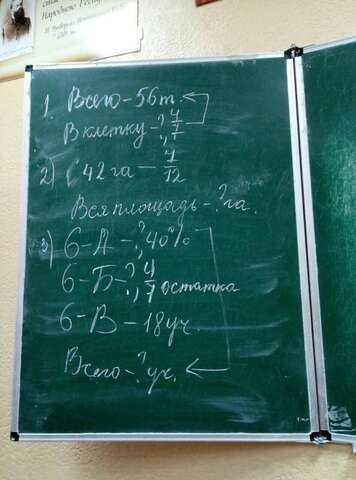 Народною Респ
1. Всего - 56 т.
В клетку - ?, 4/7
2) 42 га — 7/12
Вся площадь - ? га.
3) 6-А - ?, 40%
6-Б - ?, 4/7 остатка
6-В - 18 уч.
Всего - ? уч.